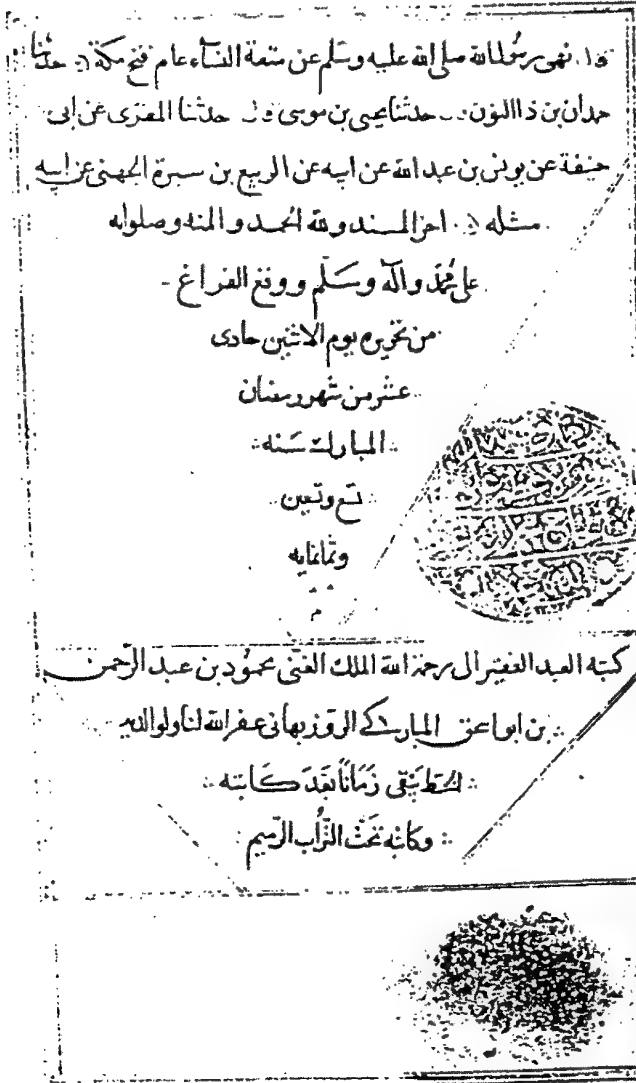 قال نهى رسول الله صلى الله عليه وسلم عن متعة النساء عام فتح مكة حدثنا
حمدان بن ذا النون حدثنا يحيى بن موسى حدثنا المقرى عن ابى
حنيفة عن يونس بن عبد الله عن ابيه عن الربيع بن سبرة الجهنى عن ابيه
مثله اخر المسند ولله الحمد والمنه وصلواته
على محمد وآله وسلم ووقع الفراغ
من تحريره يوم الاثنين حادى
عشر من شهر رمضان
المبارك سنه
تسع وتسعين
وثمانمايه
م
كتبه العبد الفقير الى رحمة الله الملك الغنى محمود بن عبد الرحمن
بن ابو اسحق المباركى الروزبهانى غفر الله لنا ولوالديه
الخط يبقى زمانا بعد كاتبه
وكاتبه تحت التراب الرميم